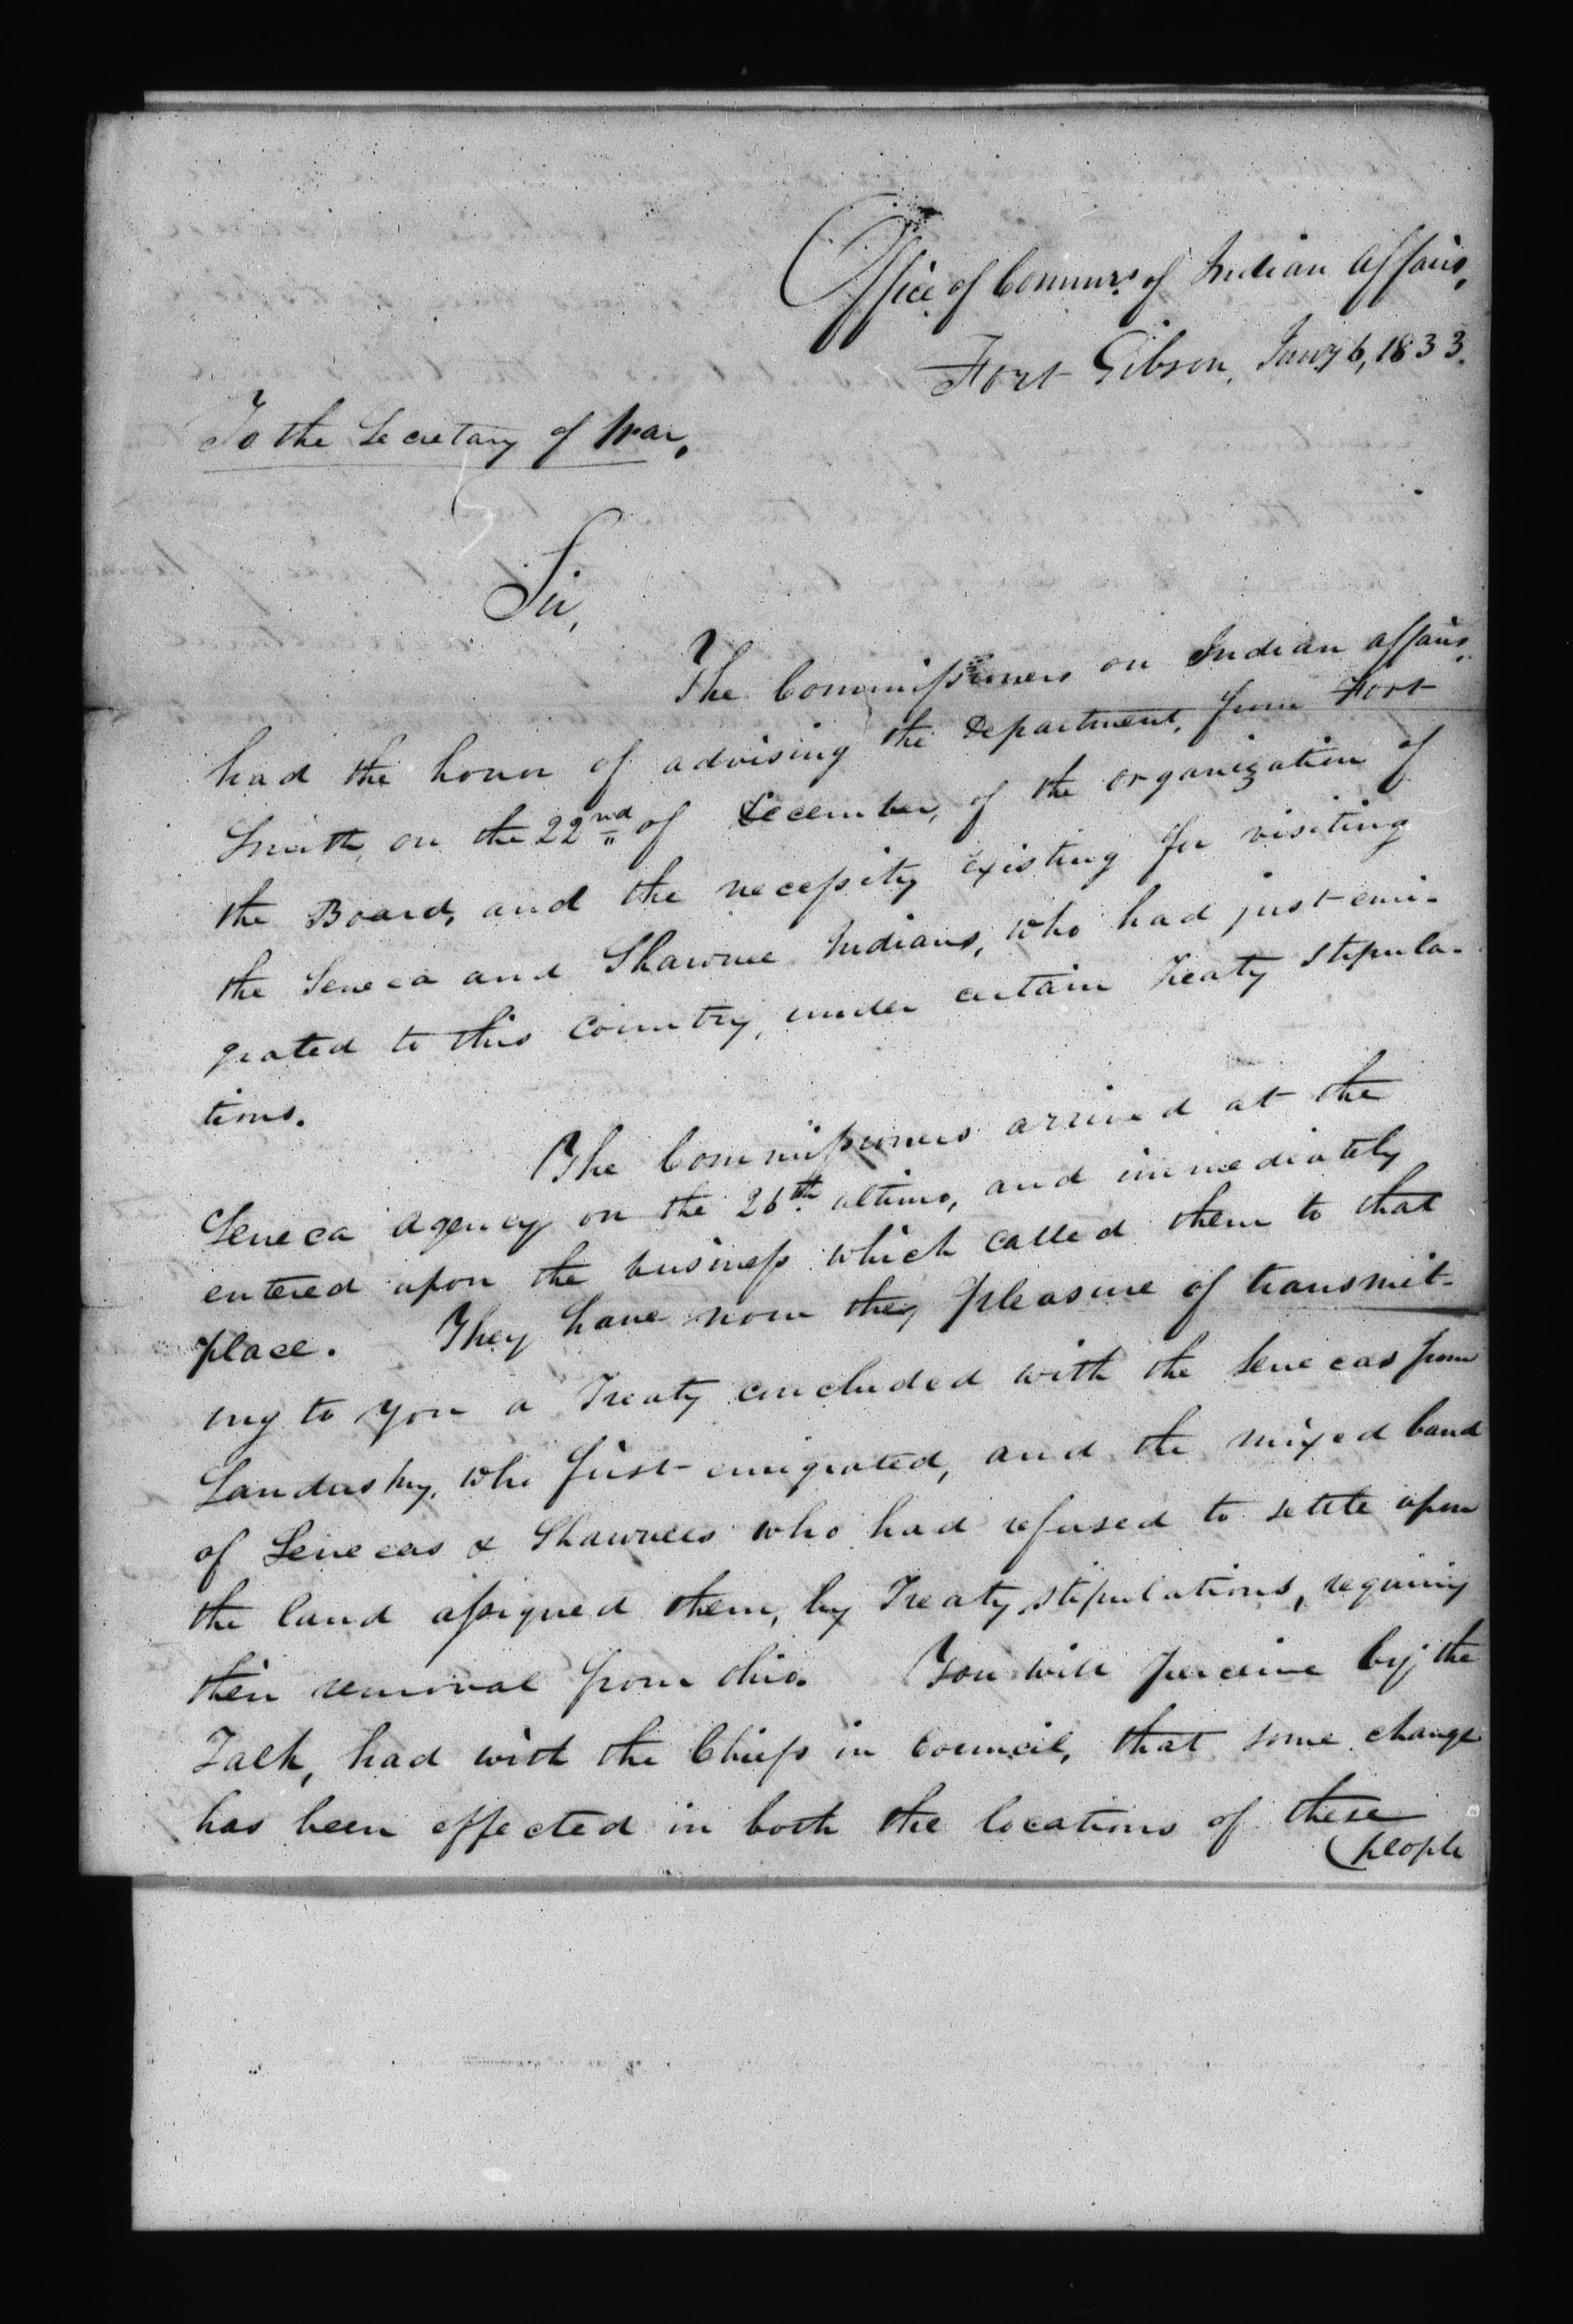 Office of Commrs. of Indian Affairs,
Fort Gibson, Jany 6, 1833.
To the Secretary of War,
Sir,
The Commissioners on Indian affairs,
had the honor of advising the Department, from Fort
Smith, on the 22nd of December, of the organization of
the Board, and the necessity existing for visiting
the Seneca and Shawnee Indians, who had just emi-
grated to this country, under certain treaty stipula-
tions.
The Commissioners arrived at the
Seneca agency on the 26th. ultimo, and immediately
entered upon the business which called them to that
place. They have now the pleasure of transmit-
ing to you a Treaty concluded with the Senecas from
Sandusky, who first emigrated, and the mixed band
of Senecas & Shawnees who had refused to settle upon
the land assigned them, by Treaty stipulations, requiring
their removal from Ohio. You will perceive by the
Talk, had with the Chiefs in Council, that some change
has been effected in both the locations of these
people